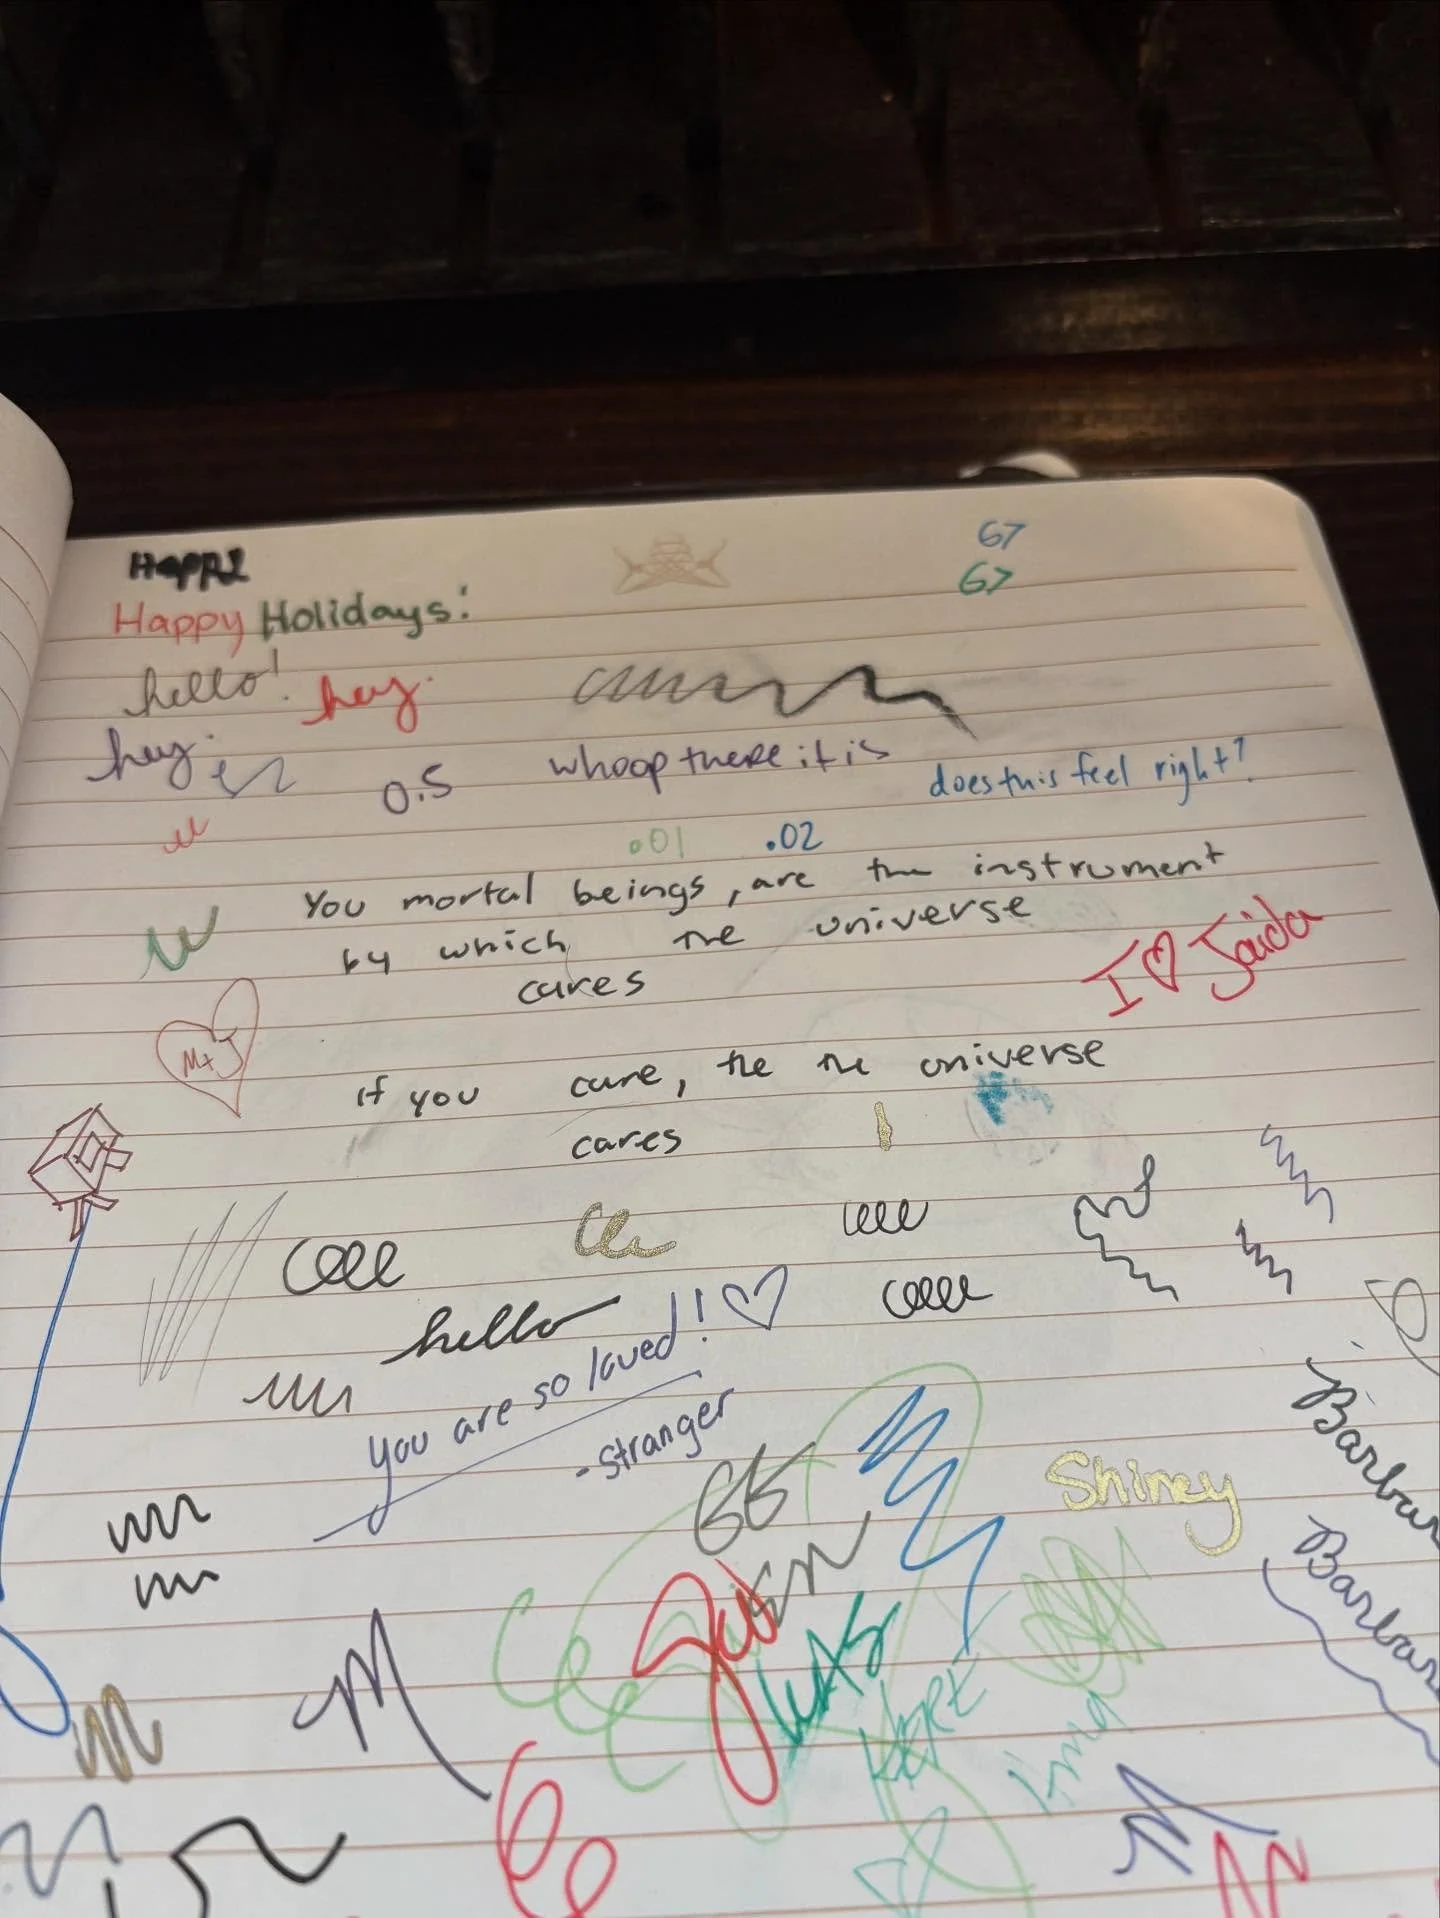 Happy
67
67
Happy Holidays!
hello! hey.
hey.
0.5 whoop there it is does this feel right?
.01 .02
You mortal beings, are the instrument
by which the universe
cares
I ♡ Jaida
M+J
if you care, the the universe
cares
hello
you are so loved! ♡
- stranger
Shiney
Barbar
Justin
was
HERE
Barbar